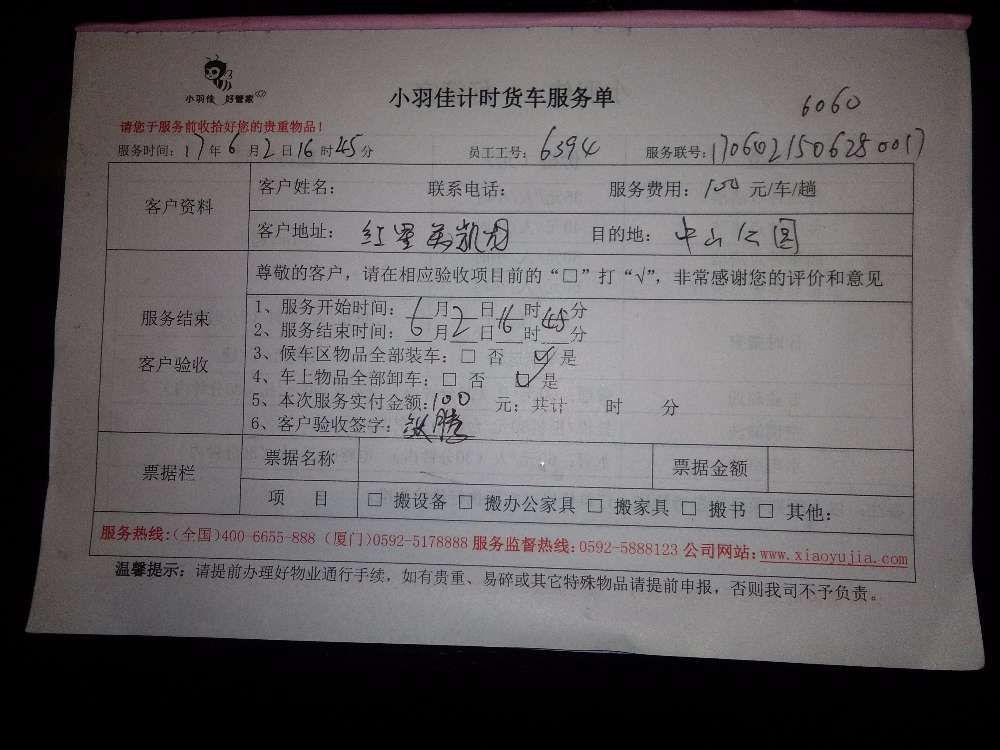 小羽佳 好管家
小羽佳计时货车服务单
6060
请您于服务前收拾好您的贵重物品！
服务时间：17年6月2日16时45分 员工工号：6394 服务联号：1706021506280017
客户资料
客户姓名： 联系电话： 服务费用：100元/车/趟
客户地址：红星美凯龙 目的地：中山公园
服务结束
客户验收
尊敬的客户，请在相应验收项目前的“□”打“√”，非常感谢您的评价和意见
1、服务开始时间：6月2日16时45分
2、服务结束时间：6月2日 时 分
3、候车区物品全部装车：□ 否 ☑ 是
4、车上物品全部卸车：□ 否 ☑ 是
5、本次服务实付金额：100 元；共计 时 分
6、客户验收签字：
票据栏
票据名称 票据金额
项 目 □ 搬设备 □ 搬办公家具 □ 搬家具 □ 搬书 □ 其他：
服务热线：(全国)400-6655-888 (厦门)0592-5178888 服务监督热线：0592-5888123 公司网站：www.xiaoyujia.com
温馨提示：请提前办理好物业通行手续，如有贵重、易碎或其它特殊物品请提前申报，否则我司不予负责。